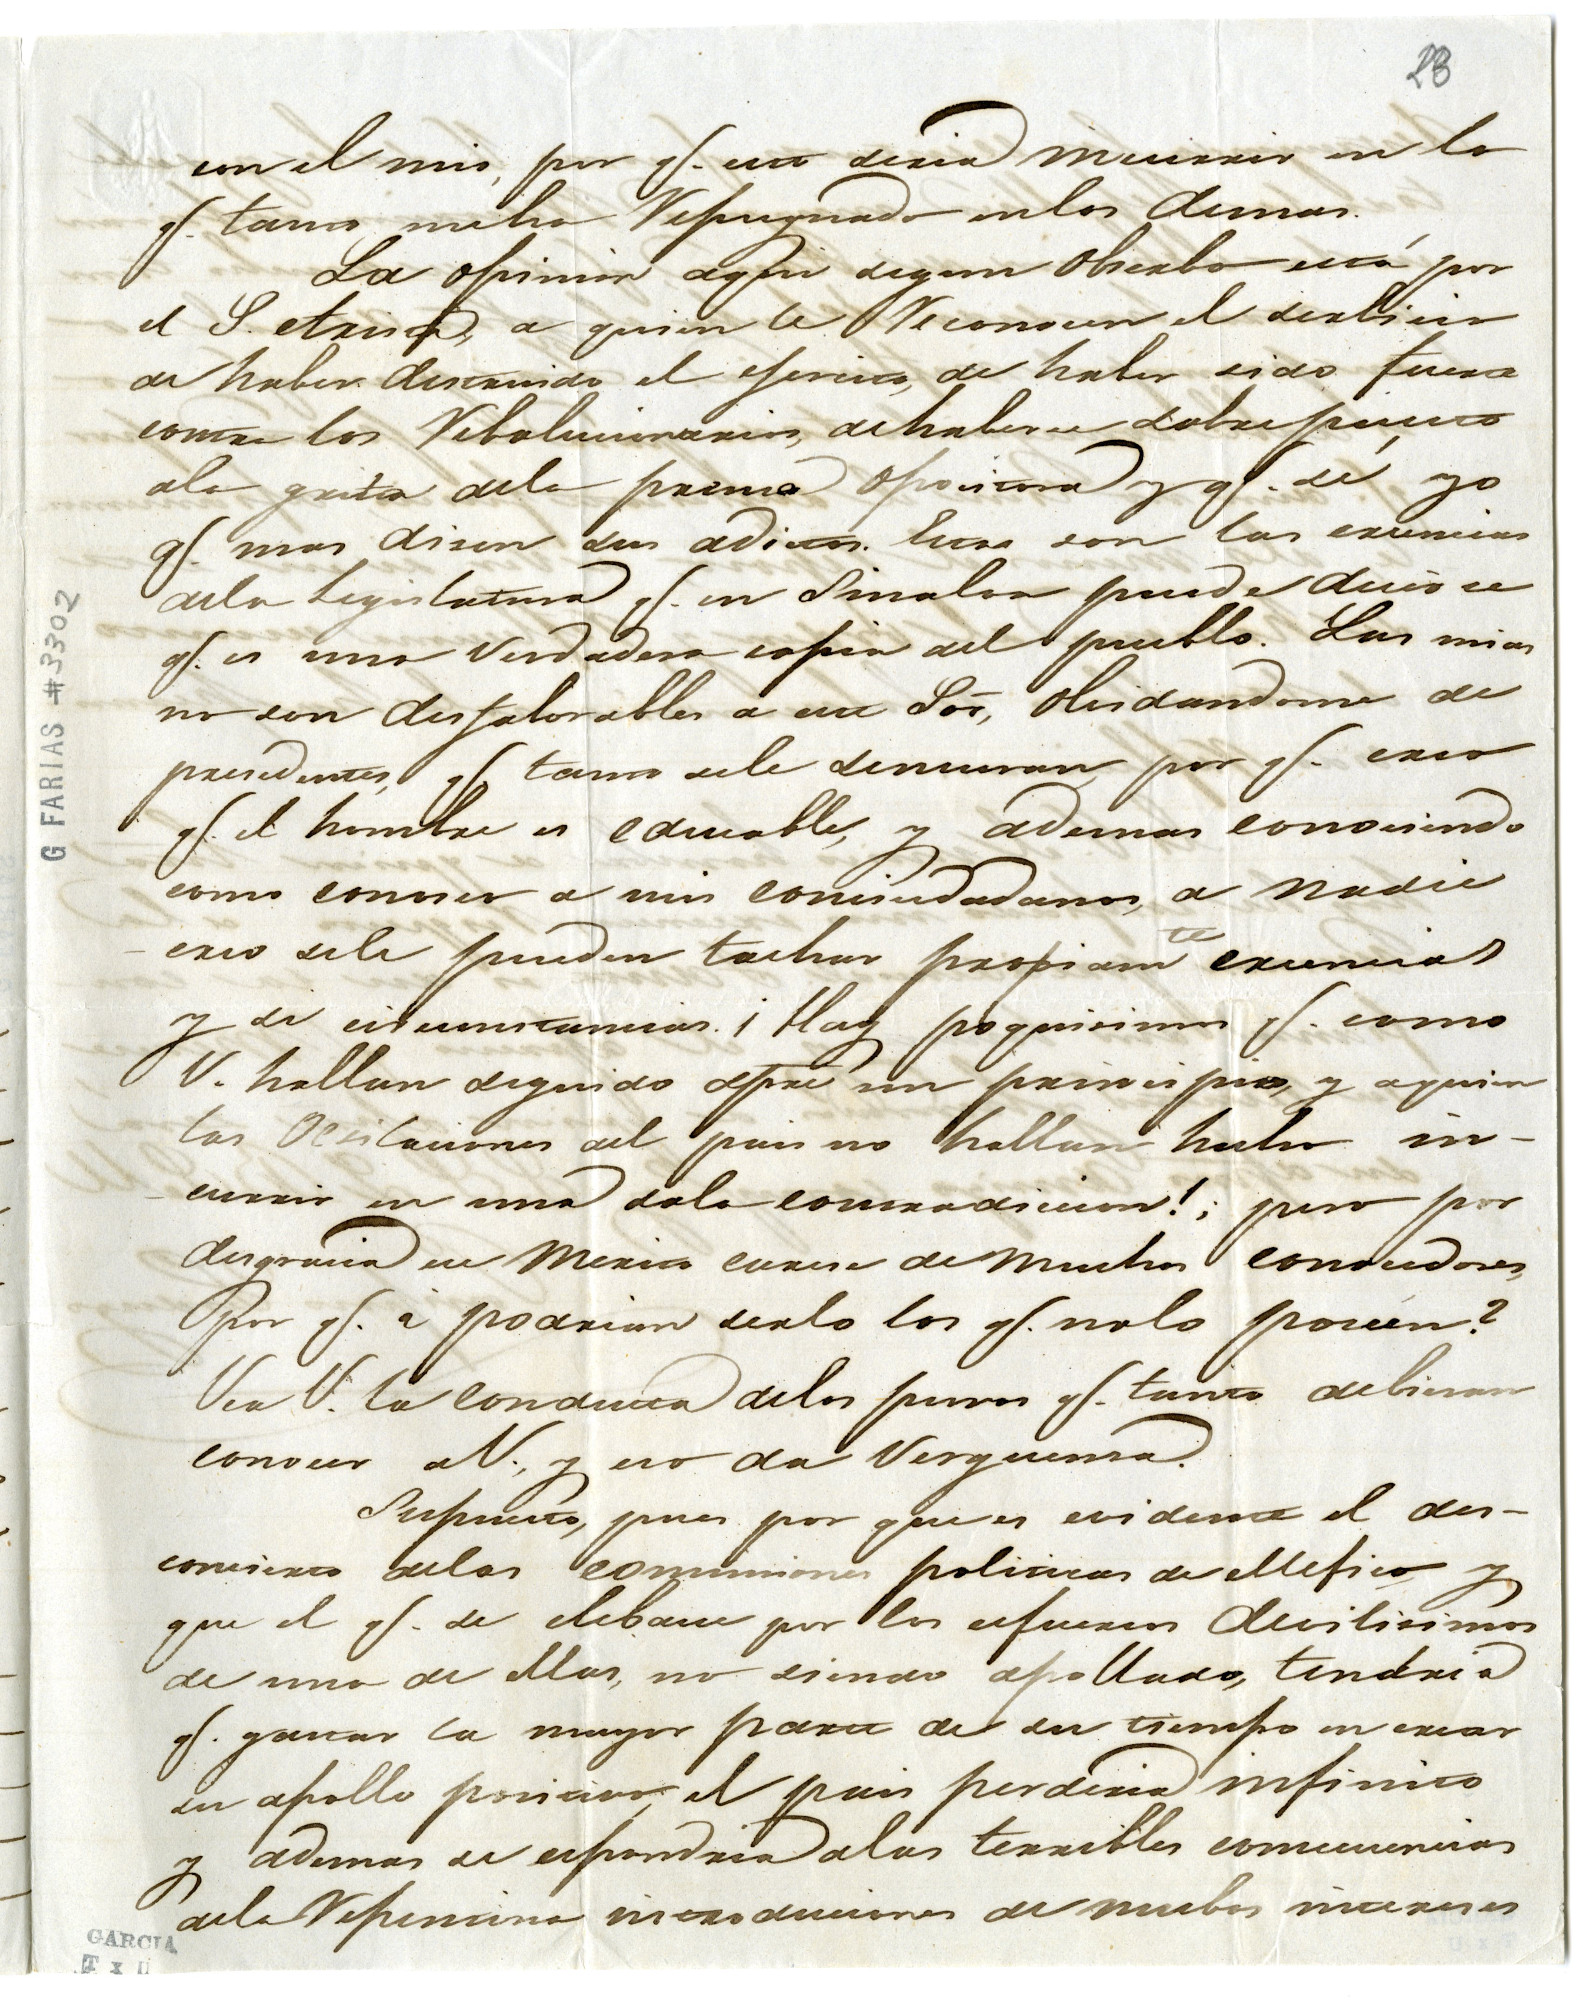 23
con el mio, por q. esto seria incurrir en lo
q. tanto mehe Repugnado en los demas.
La opinion aqui segun Obserbo está por
el S. Arista, a quien le Reconocen el serbicio
de haber destruido el ejercito, de haber sido fuerte
contra los Rebolucionarios, de haberse sobrepuesto
ala grita dela prensa opocitora y q. sé yo
q. mas disen sus adictos. Estas son las creencias
dela Legislatura q. en Sinaloa puede decirse
q. es una verdadera copia del pueblo. Las mias
no son desfaborables a este Sor, Olvidandome de
presedentes, q. tanto sele sensuran, por q. creo
q. el hombre es educable, y ademas conosiendo
como conosco a mis conciudadanos, a nadie
creo sele pueden tachar propiamte creencias
y de circunstancias. ¡Hay poquisimos q. como
V. hallan seguido spre un principio, y aquien
las Ocsilaciones del pais no hallan hecho in-
currir en una sola contradiccion!; pero por
desgracia ese Merito carese de muchos conosedores,
Por q. á podrian serlo los q. nolo poseén?
Vea V. la conducta delos puros q. tanto debieran
conocer a V., y eso da Verguensa.
Supuesto, pues por que es evidente el des-
concierto delas comuniones politicas de Mejico y
que el q. se elebase por los esfuersos devilisimos
de una de ellas, no siendo apollado, tendria
q. gastar la mayor parte de su tiempo en crear
su apollo positivo, el pais perderia infinito
y ademas se espondria alas terribles consecuencias
dela Repentina introduciones de nuebos intereses
G FARIAS #3302
GARCIA